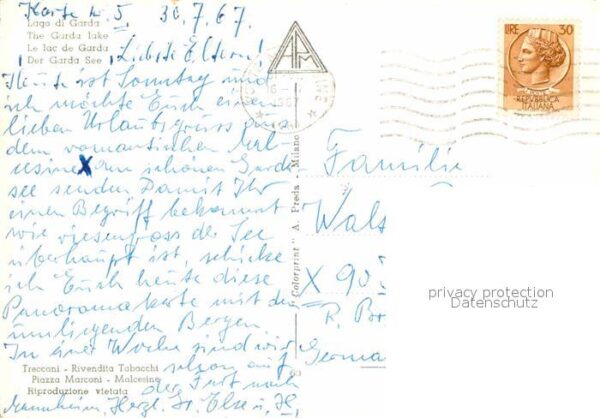 Karte Nr. 5 30.7.67
Lago di Garda
The Garda lake
Le lac de Garda
Der Garda See
Liebste Eltern!
Heute ist Sonntag und
ich möchte Euch einen
lieben Urlaubsgruss aus
dem romantischen Mal-
cesine X am schönen Garda-
see senden. Damit Ihr
einen Begriff bekommt
wie riesengross der See
überhaupt ist, schicke
ich Euch heute diese
Panoramakarte mit den
umliegenden Bergen.
In einer Woche sind wir
schon auf
der Fahrt nach
Mannheim. Herzl. Gr. Else u. H.
Treccani - Rivendita Tabacchi
Piazza Marconi - Malcesine
Riproduzione vietata
"Colorprint" A. Preda - Milano
1967
LIRE 30
REPVBBLICA
ITALIANA
Familie
Wals
X 90
R. Por
Germa
privacy protection
Datenschutz